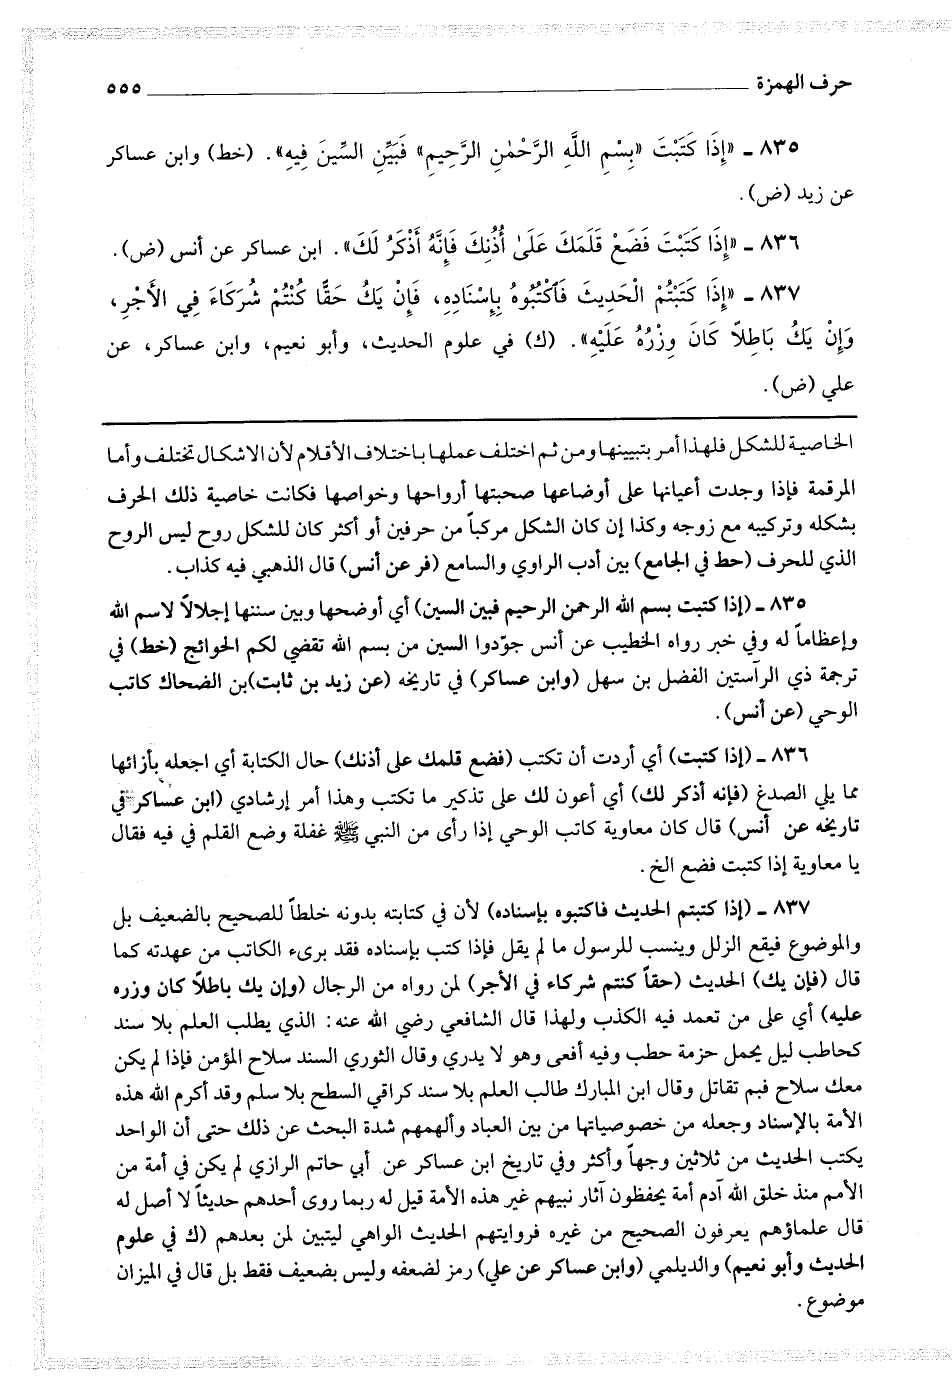 حرف الهمزة ٥٥٥
٨٣٥ ـ «إِذَا كَتَبْتَ «بِسْمِ اللَّهِ الرَّحْمٰنِ الرَّحِيمِ» فَبَيِّنِ السِّينَ فِيهِ». (خط) وابن عساكر
عن زيد (ض).
٨٣٦ ـ «إِذَا كَتَبْتَ فَضَعْ قَلَمَكَ عَلَىٰ أُذُنِكَ فَإِنَّهُ أَذْكَرُ لَكَ». ابن عساكر عن أنس (ض).
٨٣٧ ـ «إِذَا كَتَبْتُمْ الْحَدِيثَ فَاكْتُبُوهُ بِإِسْنَادِهِ، فَإِنْ يَكُ حَقًّا كُنْتُمْ شُرَكَاءَ فِي الأَجْرِ،
وَإِنْ يَكُ بَاطِلاً كَانَ وِزْرُهُ عَلَيْهِ». (ك) في علوم الحديث، وأبو نعيم، وابن عساكر، عن
علي (ض).
الخاصية للشكل فلهذا أمر بتبيينها ومن ثم اختلف عملها باختلاف الأقلام لأن الاشكال تختلف وأما
المرقمة فإذا وجدت أعيانها على أوضاعها صحبتها أرواحها وخواصها فكانت خاصية ذلك الحرف
بشكله وتركيبه مع زوجه وكذا إن كان الشكل مركباً من حرفين أو أكثر كان للشكل روح ليس الروح
الذي للحرف (حط في الجامع) بين أدب الراوي والسامع (فر عن أنس) قال الذهبي فيه كذاب.
٨٣٥ ـ (إذا كتبت بسم الله الرحمن الرحيم فبين السين) أي أوضحها وبين سننها إجلالاً لاسم الله
وإعظاماً له وفي خبر رواه الخطيب عن أنس جوّدوا السين من بسم الله تقضي لكم الحوائج (خط) في
ترجمة ذي الرآستين الفضل بن سهل (وابن عساكر) في تاريخه (عن زيد بن ثابت)بن الضحاك كاتب
الوحي (عن أنس).
٨٣٦ ـ (إذا كتبت) أي أردت أن تكتب (فضع قلمك على أذنك) حال الكتابة أي اجعله بأزائها
مما يلي الصدغ (فإنه أذكر لك) أي أعون لك على تذكير ما تكتب وهذا أمر إرشادي (ابن عساكر في
تاريخه عن أنس) قال كان معاوية كاتب الوحي إذا رأى من النبي ﷺ غفلة وضع القلم في فيه فقال
يا معاوية إذا كتبت فضع الخ.
٨٣٧ ـ (إذا كتبتم الحديث فاكتبوه بإسناده) لأن في كتابته بدونه خلطاً للصحيح بالضعيف بل
والموضوع فيقع الزلل وينسب للرسول ما لم يقل فإذا كتب بإسناده فقد برىء الكاتب من عهدته كما
قال (فإن يك) الحديث (حقاً كنتم شركاء في الأجر) لمن رواه من الرجال (وإن يك باطلاً كان وزره
عليه) أي على من تعمد فيه الكذب ولهذا قال الشافعي رضي الله عنه: الذي يطلب العلم بلا سند
كحاطب ليل يحمل حزمة حطب وفيه أفعى وهو لا يدري وقال الثوري السند سلاح المؤمن فإذا لم يكن
معك سلاح فبم تقاتل وقال ابن المبارك طالب العلم بلا سند كراقي السطح بلا سلم وقد أكرم الله هذه
الأمة بالإسناد وجعله من خصوصياتها من بين العباد وألهمهم شدة البحث عن ذلك حتى أن الواحد
يكتب الحديث من ثلاثين وجهاً وأكثر وفي تاريخ ابن عساكر عن أبي حاتم الرازي لم يكن في أمة من
الأمم منذ خلق الله آدم أمة يحفظون آثار نبيهم غير هذه الأمة قيل له ربما روى أحدهم حديثاً لا أصل له
قال علماؤهم يعرفون الصحيح من غيره فروايتهم الحديث الواهي ليتبين لمن بعدهم (ك في علوم
الحديث وأبو نعيم) والديلمي (وابن عساكر عن علي) رمز لضعفه وليس بضعيف فقط بل قال في الميزان
موضوع.